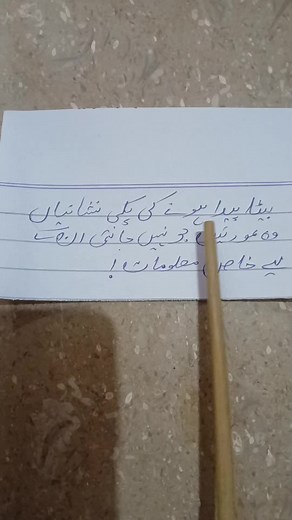 بیٹا پیدا ہونے کی پکی نشانیاں
وہ عورتیں جو نہیں جانتی ان کے
لیے خاص معلومات!